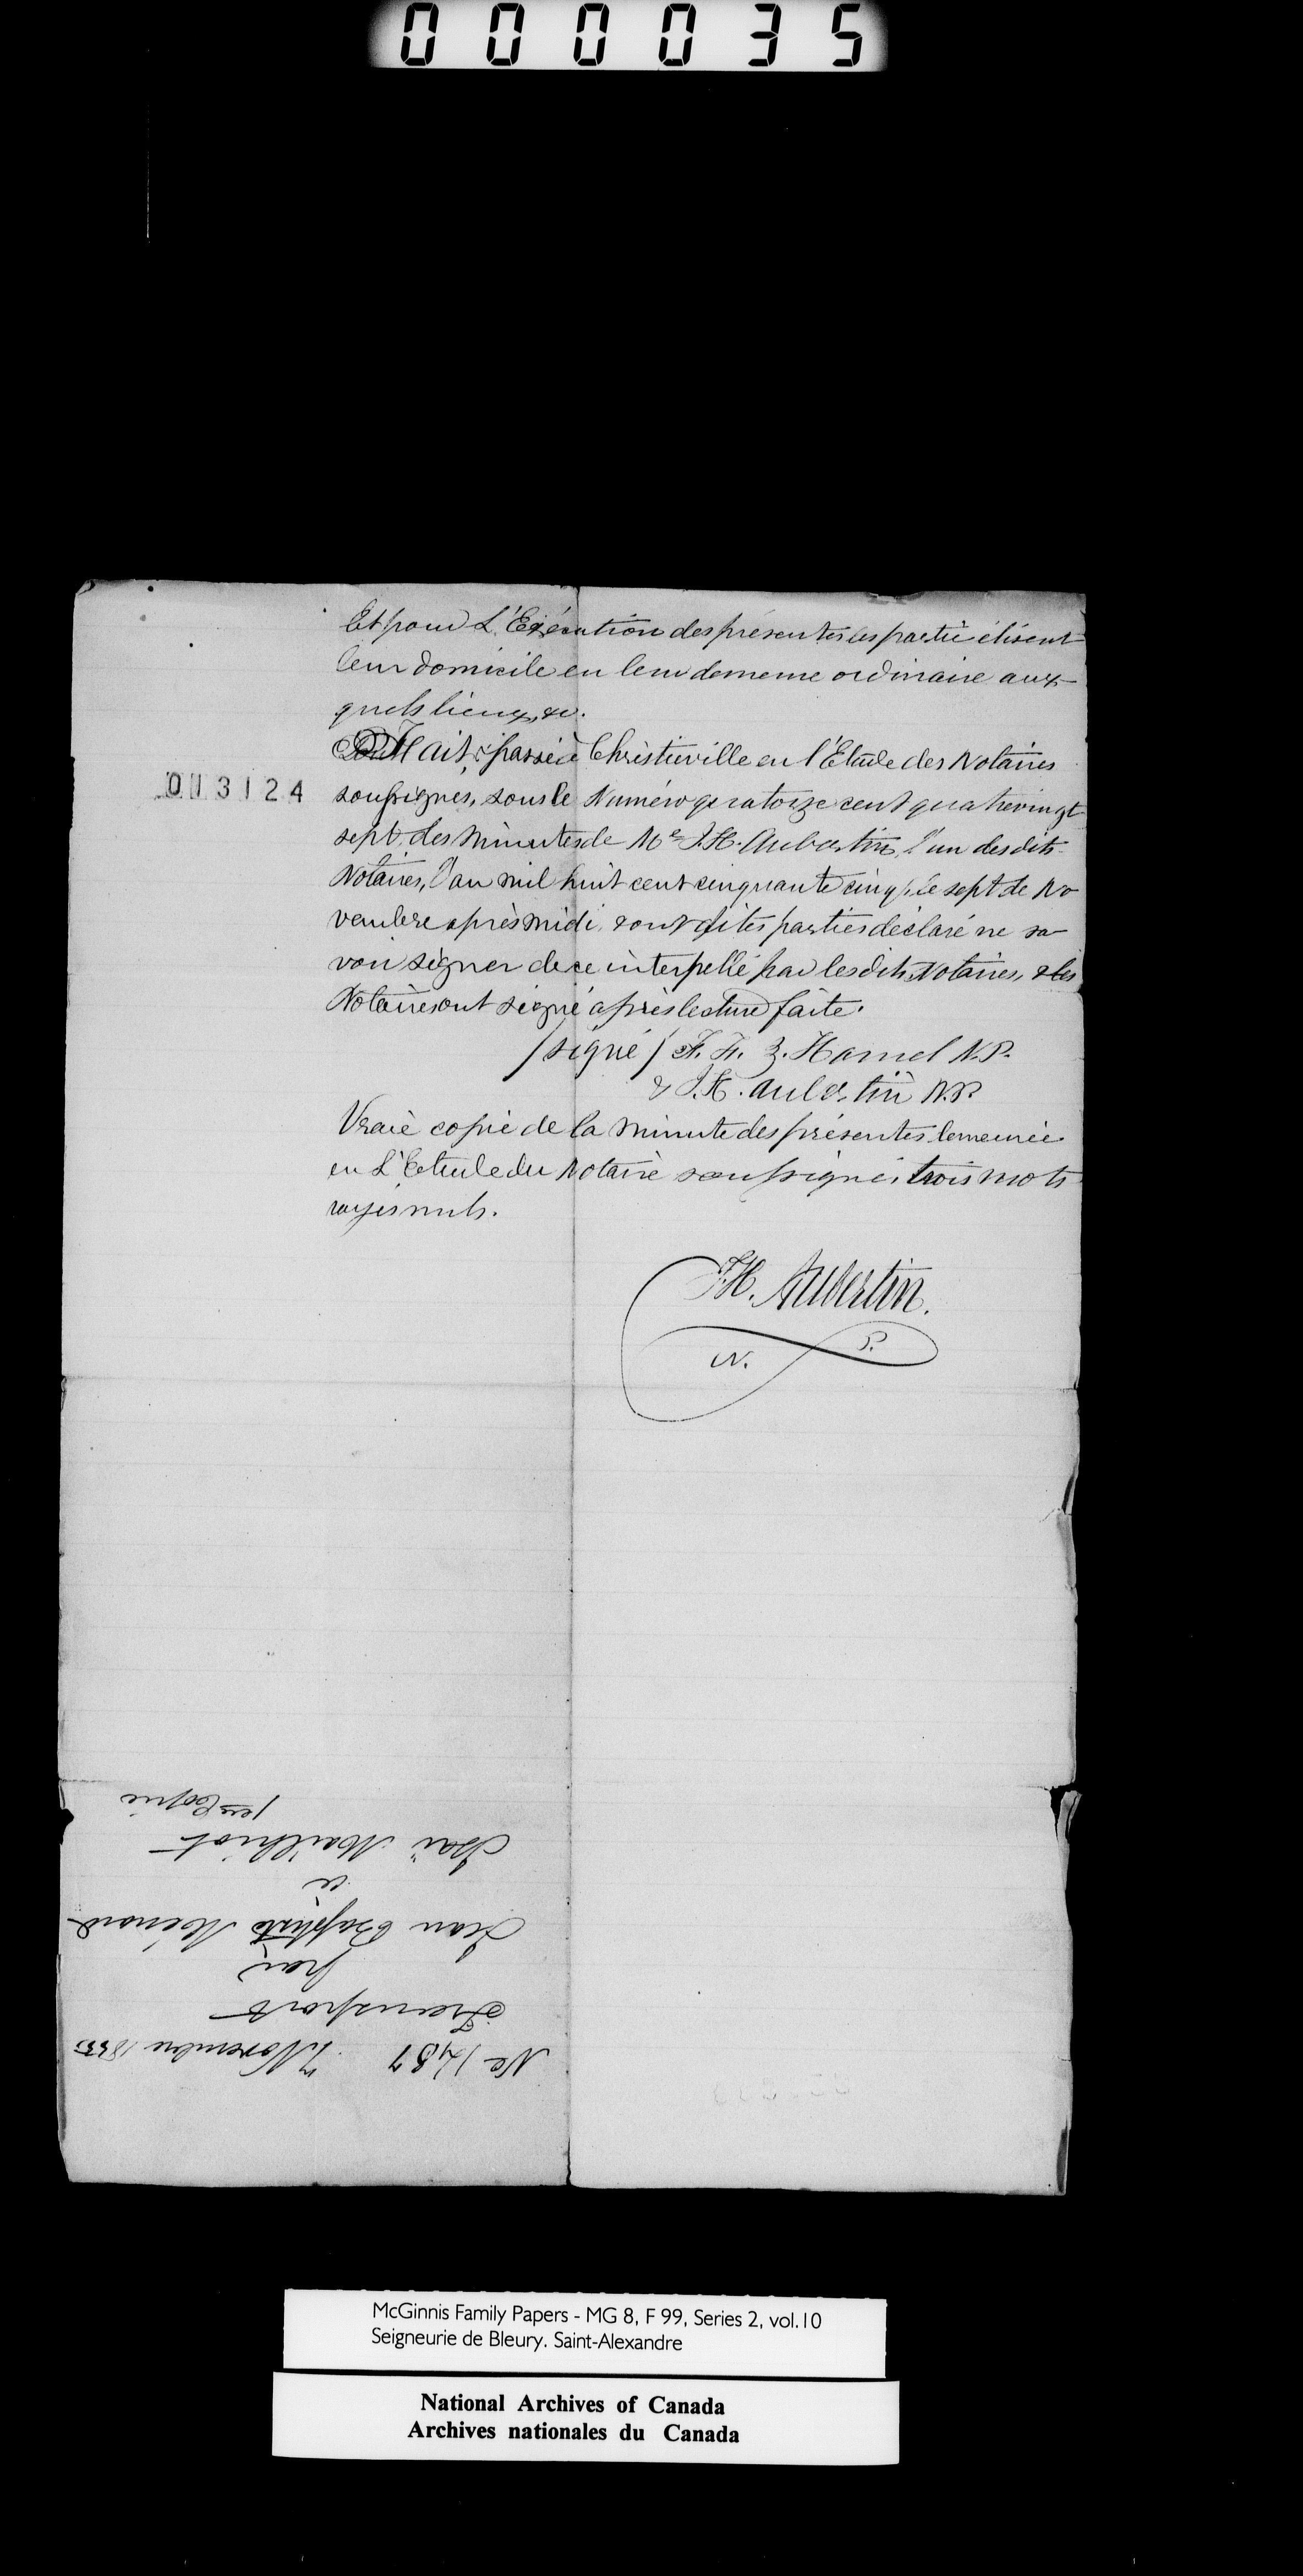 000035
Et pour L'Exécution des présentes les partie élisent
leur domicile en leur demeure ordinaire aux-
quels lieux, &c.
Fait & passé à Christieville en l'Etude des Notaires
013124
soussignés, sous le Numéro quatorze cent quatrevingt
sept des Minutes de Me J.H. Aubertin, l'un des dits
Notaires, l'an mil huit cent cinquante cinq, le sept de No
vembre après midi, & ont dites parties déclaré ne sa-
voir signer de ce interpellé par les dits Notaires, & les
Notaires ont signé après lecture faite.
/signé/ F. Z. Hamel N.P.
& J.H. Aubertin N.P.
Vraie copie de la Minute des présentes demeurée
en L'Etude du Notaire soussigné, trois mots
rayés nuls.
J.H. Aubertin.
N. P.
No 1487 7 Novembre 1855
Transport
par
Jean Baptiste Ménard
à
Mailhiot
1ere Copie
McGinnis Family Papers - MG 8, F 99, Series 2, vol.10
Seigneurie de Bleury. Saint-Alexandre
National Archives of Canada
Archives nationales du Canada